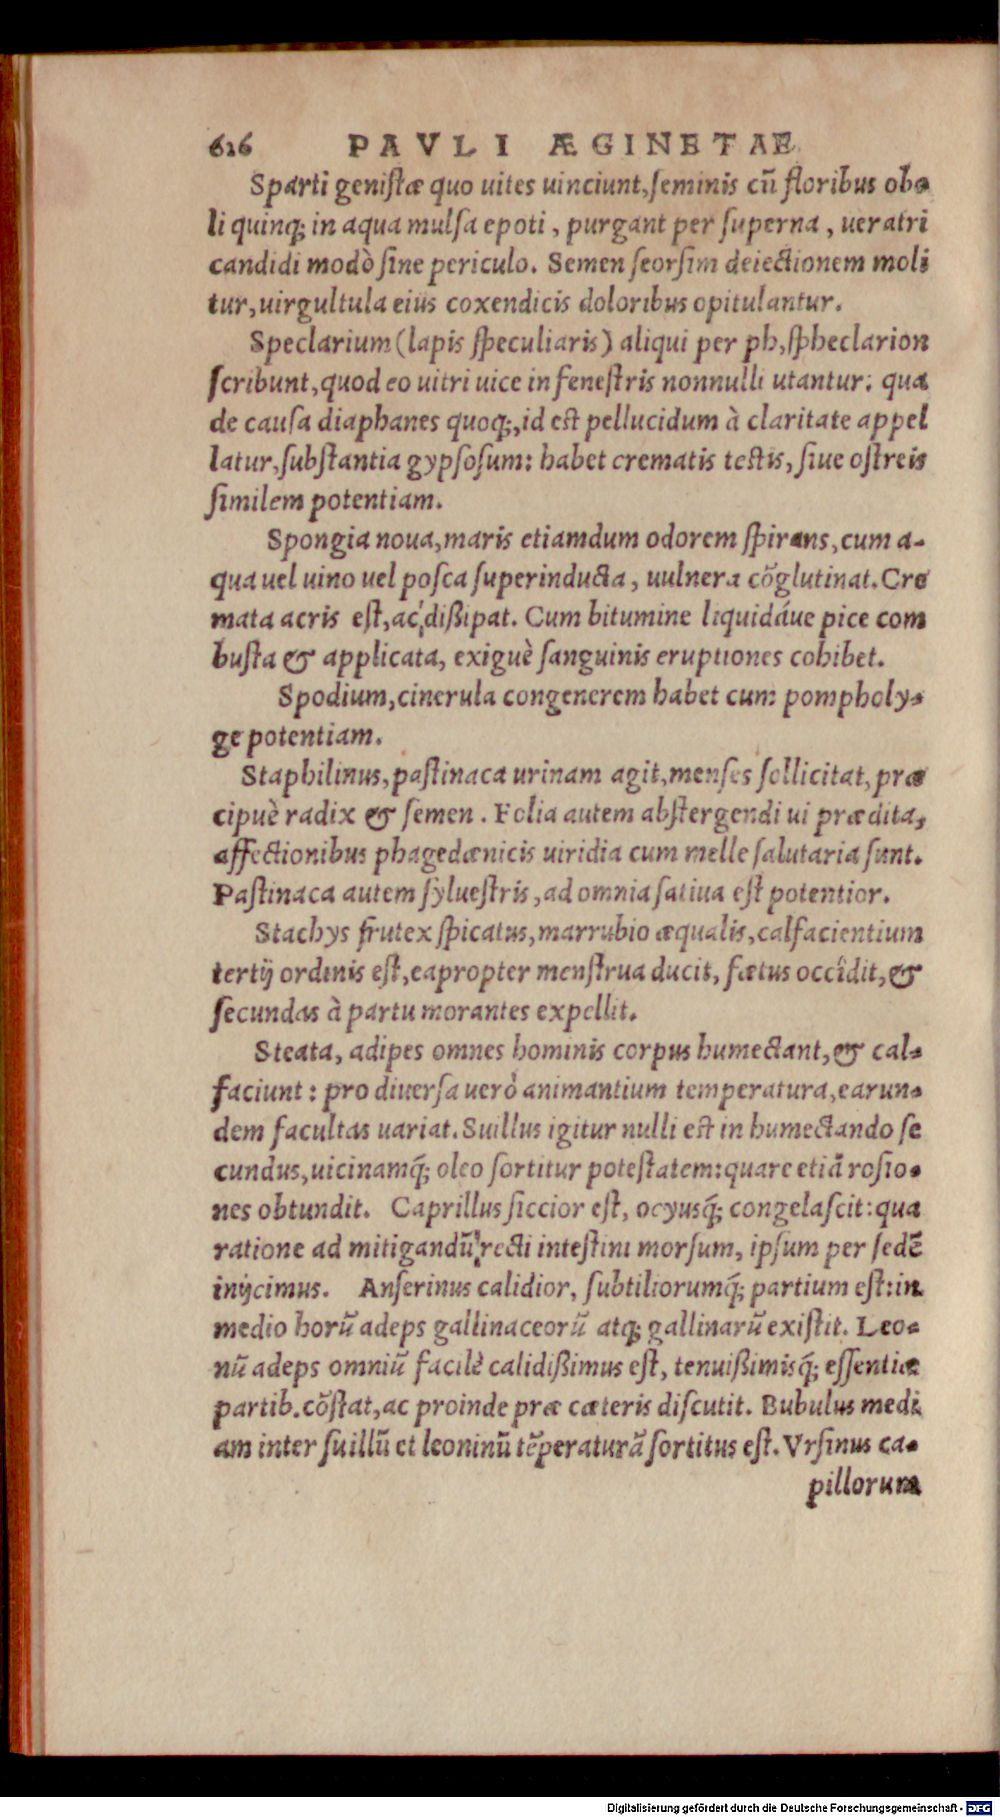 616 PAVLI ÆGINETAE
Sparti genistæ quo uites uinciunt, seminis cū floribus obo
li quinq; in aqua mulsa epoti, purgant per superna, ueratri
candidi modò sine periculo. Semen seorsim deiectionem moli
tur, uirgultula eius coxendicis doloribus opitulantur.
Speclarium (lapis speculiaris) aliqui per ph, spheclarion
scribunt, quod eo uitri uice in fenestris nonnulli utantur: qua
de causa diaphanes quoq;, id est pellucidum à claritate appel
latur, substantia gypsosum: habet crematis testis, siue ostreis
similem potentiam.
Spongia noua, maris etiamdum odorem spirans, cum a-
qua uel uino uel posca superinducta, uulnera cōglutinat. Cre
mata acris est, ac dißipat. Cum bitumine liquidáue pice com
busta & applicata, exiguè sanguinis eruptiones cohibet.
Spodium, cinerula congenerem habet cum pompholy-
ge potentiam.
Staphilinus, pastinaca urinam agit, menses sollicitat, præ
cipuè radix & semen. Folia autem abstergendi ui prædita,
affectionibus phagedænicis uiridia cum melle salutaria sunt.
Pastinaca autem syluestris, ad omnia satiua est potentior.
Stachys frutex spicatus, marrubio æqualis, calfacientium
tertij ordinis est, eapropter menstrua ducit, fœtus occîdit, &
secundas à partu morantes expellit.
Steata, adipes omnes hominis corpus humectant, & cal-
faciunt: pro diuersa uerò animantium temperatura, earun-
dem facultas uariat. Suillus igitur nulli est in humectando se
cundus, uicinamq́; oleo sortitur potestatem: quare etiā rosio-
nes obtundit. Caprillus siccior est, ocyusq́; congelascit: qua
ratione ad mitigandū recti intestini morsum, ipsum per sedē
inijcimus. Anserinus calidior, subtiliorumq́; partium est: in
medio horū adeps gallinaceorū atq; gallinarū existit. Leo-
nū adeps omniū facilè calidißimus est, tenuißimisq́; essentiæ
partib. cōstat, ac proinde præ cæteris discutit. Bubulus medi
am inter suillū et leoninū tēperaturā sortitus est. Vrsinus ca-
pillorum
Digitalisierung gefördert durch die Deutsche Forschungsgemeinschaft - DFG